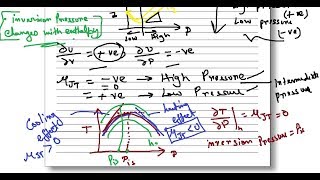 inversion Pressure
changes with enthalpy
Low High P
Low Pressure
(+ve)
(-ve)
∂υ/∂ = +ve, ∂υ/∂P = -ve
μJT = -ve → High Pressure
= 0
= +ve → Low Pressure
intermediate
pressure
Cooling
effect
μJT > 0
T
heating
effect
μJT < 0
h
P
∂T/∂P|h = μJT = 0
inversion Pressure = Pi